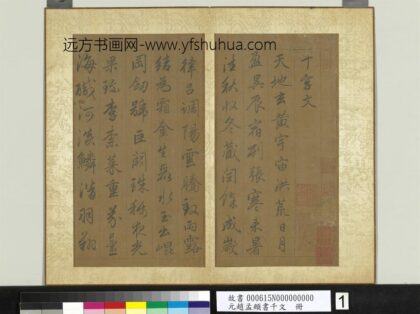 远方书画网-www.yfshuhua.com
千字文
天地玄黄宇宙洪荒日月
盈昃辰宿列張寒来暑
往秋收冬藏閏餘成歲
律吕調陽雲騰致雨露
結為霜金生麗水玉出崐
岡劍號巨闕珠稱夜光
果珎李柰菜重芥薑
海醎河淡鱗潛羽翔
故書 000615N000000000
元趙孟頫書千文 冊
1